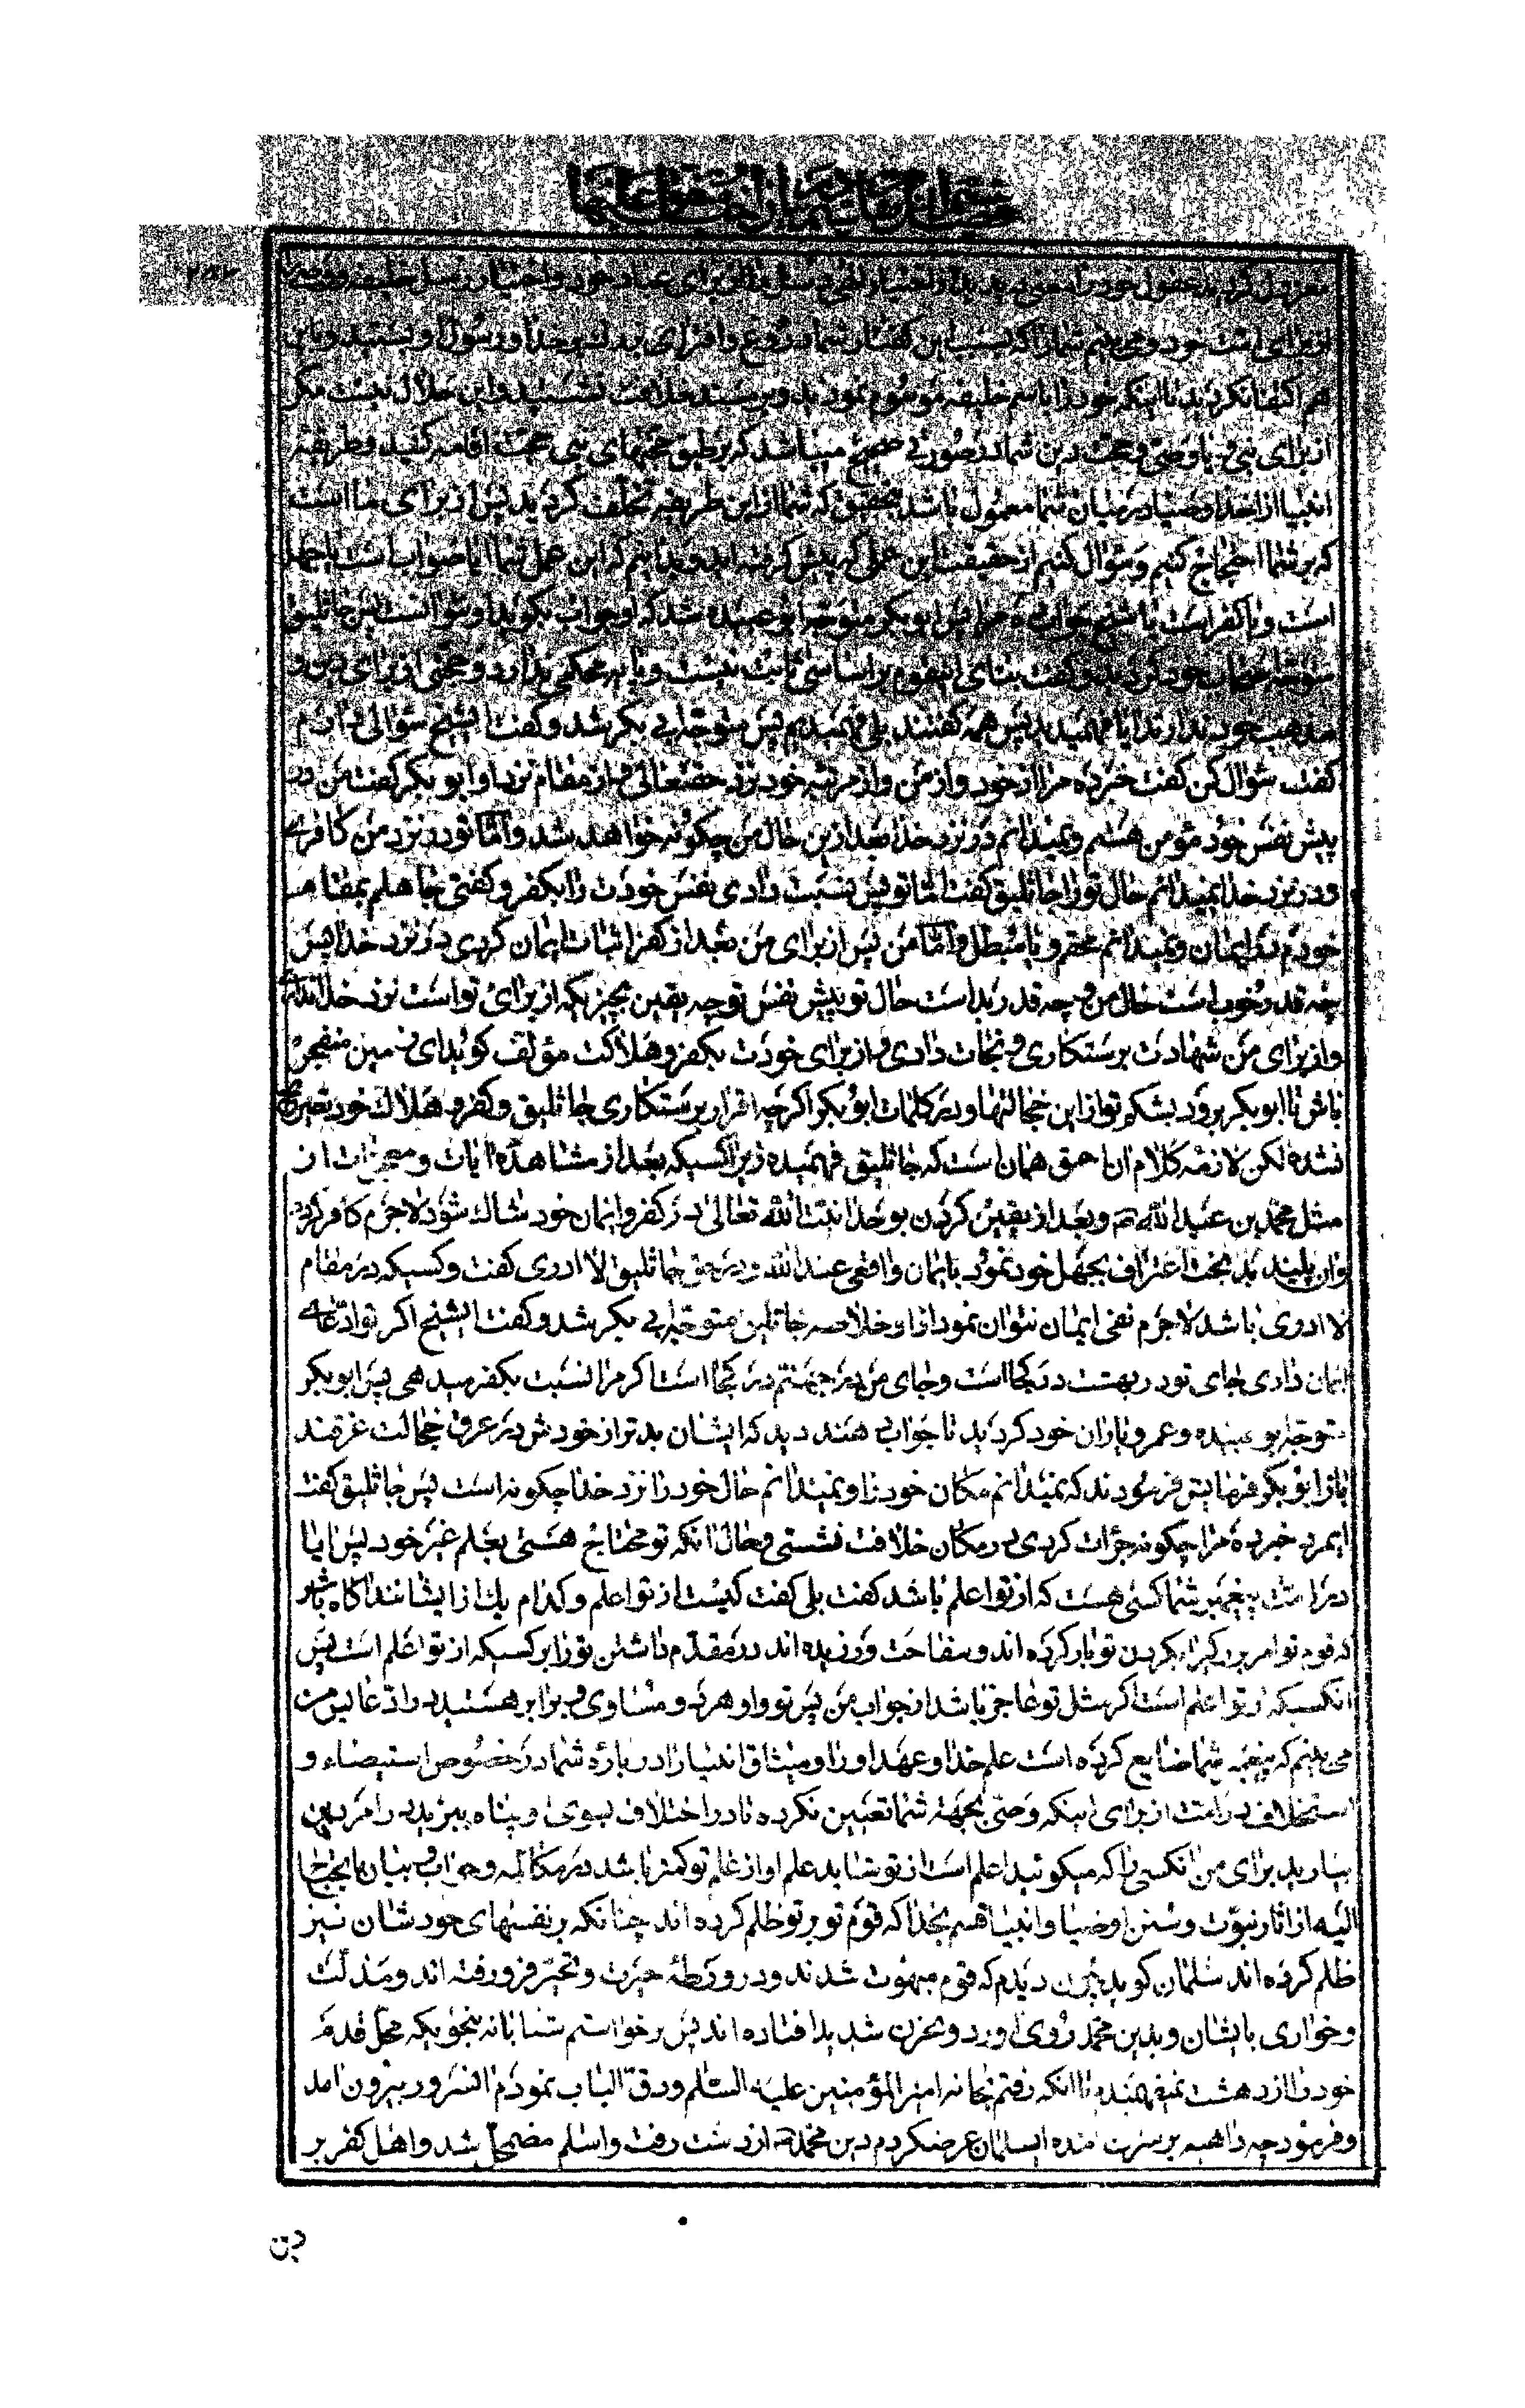 از برای امت خود و می بینم شما را که بسبب این گفتار شما دروغ و افترای بزرگ بر خدا و رسول او بستید و باین
هم اکتفا نکردید تا اینکه خود را باسم خلیفه موسوم نمودید و بر مسند خلافت نشستید و این حلال نیست مگر
از برای نبی و یا وصی و حجت دین شما در صورتی صحیح میباشد که بر طبق حجتهای نبی حجت اقامه کنید و طریقه
انبیا از اخذ اوصیا در میان شما معمول باشد بتحقیق که شما از این طریقه تخلف کردید پس از برای ما است
که بر شما احتجاج کنیم و سؤال کنیم از حقیقت این عملی که پیش گرفته اید و بدانیم که این عمل شما ایا صواب است یا جهل
است و یا کفر است یا شیخ جواب ده مرا پس ابو بکر متوجه ابو عبیده شد که او جواب بگوید او نتوانست پس جاثلیق
متوجه اصحاب خود گردید و گفت بنای اینقوم بر اساسی ثابت نیست و پایه محکمی ندارد و حجتی از برای دین و
مذهب خود ندارند ایا فهمیدید پس همه گفتند بلی فهمیدیم پس متوجه ابی بکر شد و گفت ایشیخ سؤالی دارم
گفت سؤال کن گفت خبر ده مرا از خود و از من و از مرتبه خود نزد حقتعالی و از مقام نزد او ابو بکر گفت من در
پیش نفس خود مؤمن هستم و نمیدانم در نزد خدا بعد ازین حال من چگونه خواهد شد و اما تو در نزد من کافری
و در نزد خدا نمیدانم حال تو را جاثلیق گفت اما تو پس نسبت دادی نفس خودت را بکفر و گفتی جاهلم بمقام
خودم در ایمان و نمیدانم محقم و یا مبطل و اما من پس از برای من بعد از کفر اثبات ایمان کردی در نزد خدا پس
چه قدر خوب است حال من و چه قدر بد است حال تو پیش نفس تو چه یقین بچیزیکه از برای تو است نزد خدا نداری
و از برای من شهادت برستگاری و نجات دادی و از برای خودت بکفر و هلاکت مؤلف گوید ای زمین منفجر
باش تا ابو بکر برود بشکم تو از این خجالتها و در کلمات ابو بکر اگرچه اقرار برستگاری جاثلیق و کفر و هلاک خود تصریح
نشده لکن لازمه کلام ان احمق همان است که جاثلیق فهمیده زیرا کسیکه بعد از مشاهده ایات و معجزات از
مثل محمد بن عبد الله و بعد از یقین کردن بوحدانیت الله تعالی در کفر و ایمان خود شاک شود لاجرم کافر گردد
وان پلید بدبخت اعتراف بجهل خود نمود بایمان واقعی عند الله و در حق جاثلیق لا ادری گفت و کسیکه در مقام
لا ادری باشد لاجرم نفی ایمان نتوان نمود از او خلاصه جاثلیق متوجه ابی بکر شد و گفت ایشیخ اگر تو ادعای
ایمان داری جای تو در بهشت در کجا است و جای من در جهنم در کجا است اگر مرا نسبت بکفر میدهی پس ابو بکر
متوجه ابو عبیده و عمر و یاران خود گردید تا جوابی دهند دید که ایشان بدتر از خودش در عرق خجالت غرقند
باز ابو بکر فرمایش فرمودند که نمیدانم مکان خود را و نمیدانم حال خود را نزد خدا چگونه است پس جاثلیق گفت
ایمرد خبر ده مرا چگونه جرات کردی در مکان خلافت نشستی و حال انکه تو محتاج هستی بعلم غیر خود پس ایا
در امت پیغمبر شما کسی هست که از تو اعلم باشد گفت بلی گفت کیست از تو اعلم و کدام یک از ایشانند اگاه باش
که قوم تو امر بزرگ را بگردن تو بار کرده اند و سفاحت ورزیده اند در مقدم داشتن تو را بر کسیکه از تو اعلم است پس
انکسیکه از تو اعلم است اگر مثل تو عاجز باشد از جواب من پس تو و او هر دو مساوی و برابر هستید در ادعا پس من
می بینم که پیغمبر شما ضایع کرده است علم خدا و عهد او را و میثاق انبیا را در باره شما در خصوص استیصاء و
استخلاف در امت از برای اینکه وصی بجهة شما تعیین نکرده تا در اختلاف بسوی او پناه ببرید در امر دین
بیارید برای من انکسی را که میگوئید اعلم است از تو شاید علم او از علم تو کمتر باشد در مکالمه و جواب و بیان ما یحتاج
الیه از اثار نبوت و سنن اوصیا و انبیا قسم بخدا که قوم تو بر تو ظلم کرده اند چنانکه بر نفسهای خودشان نیز
ظلم کرده اند سلمان گوید چون دیدم که قوم مبهوت شدند و در ورطهٔ حیرت و تحیر فرو رفته اند و مذلت
و خواری بایشان و بدین محمد روی اورد و بحزن شدید افتاده اند پس برخواستم شتابانه بنحویکه محل قدم
خود را از دهشت نمیفهمیدم تا انکه رفتم بخانه امیر المؤمنین علیه السلام و دق الباب نمودم ان سرور بیرون امد
و فرمود چه داهیه بر سرت امده ایسلمان عرضکردم دین محمد از دست رفت و اسلام مضمحل شد و اهل کفر بر
دین